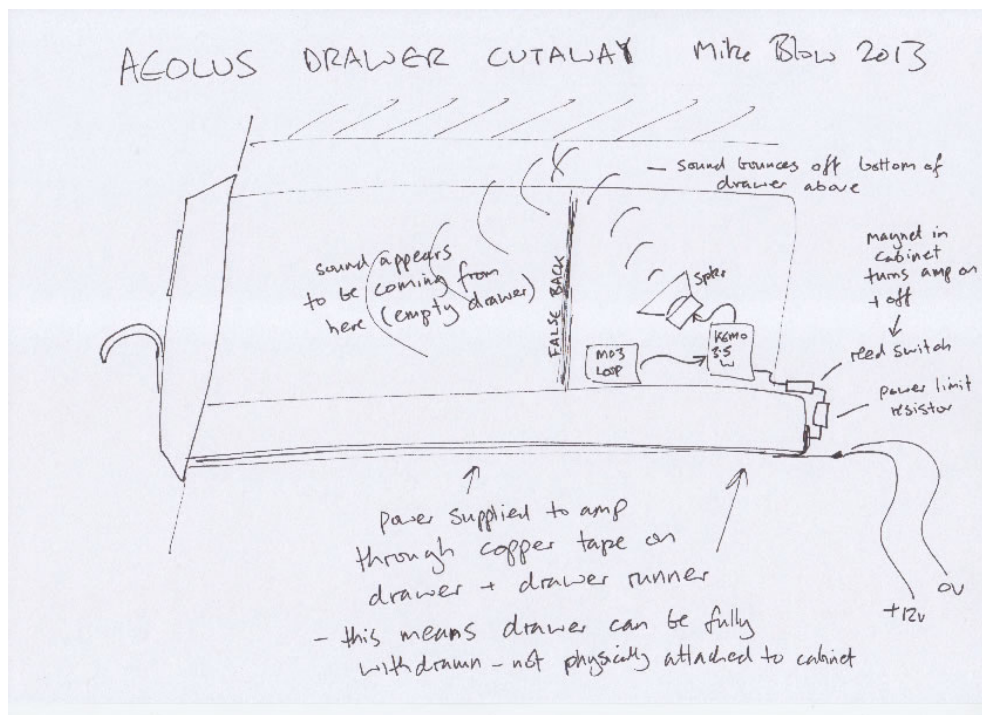 AEOLUS DRAWER CUTAWAY Mike Blow 2013
— sound bounces off bottom of
drawer above
sound appears
to be coming from
here (empty drawer)
FALSE BACK
spkr
MP3
LOOP
KEMO
3.5
W
magnet in
cabinet
turns amp on
+ off
reed switch
power limit
resistor
power supplied to amp
through copper tape on
drawer + drawer runner
- this means drawer can be fully
withdrawn - not physically attached to cabinet
+12v
0v